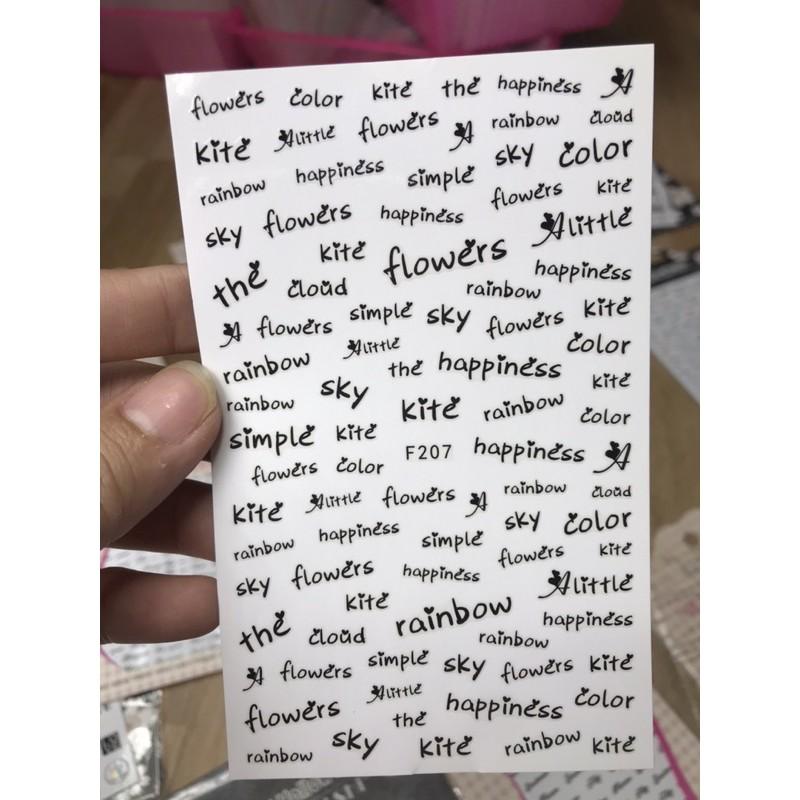 flowers color kite the happiness A
kite Alittle flowers A rainbow cloud
rainbow happiness simple sky color
sky flowers happiness flowers kite
the kite flowers Alittle
cloud rainbow happiness
A flowers simple sky flowers kite
rainbow Alittle the happiness color
rainbow sky kite rainbow kite
simple kite F207 happiness color
flowers color A
kite Alittle flowers A rainbow cloud
rainbow happiness simple sky color
sky flowers happiness flowers kite
the kite rainbow Alittle
cloud rainbow happiness
A flowers simple sky flowers kite
flowers Alittle the happiness color
rainbow sky kite rainbow kite